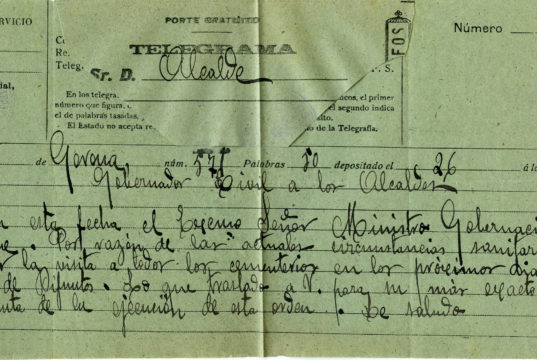 ERVICIO
PORTE GRATUITO
Número
TELEGRAMA
Re.
Teleg.
Sr. D. Alcalde
P. S.
FOS
ial,
En los telegra
icos, el primer
número que figura,
el segundo indica
el de palabras tasadas,
El Estado no acepta re
o de la Telegrafía.
de Gerona núm. 571 Palabras 50 depositado el 26 á l
Gobernador Civil a los Alcaldes
n esta fecha el Excmo Señor Ministro Gobernaci
e. Por razón de las actuales circunstancias sanitar
r la visita a todos los cementerios en los próximos dia
de Difuntos. Lo que traslado a V. para su más exacto
nta de la ejecución de esta orden. Le saludo